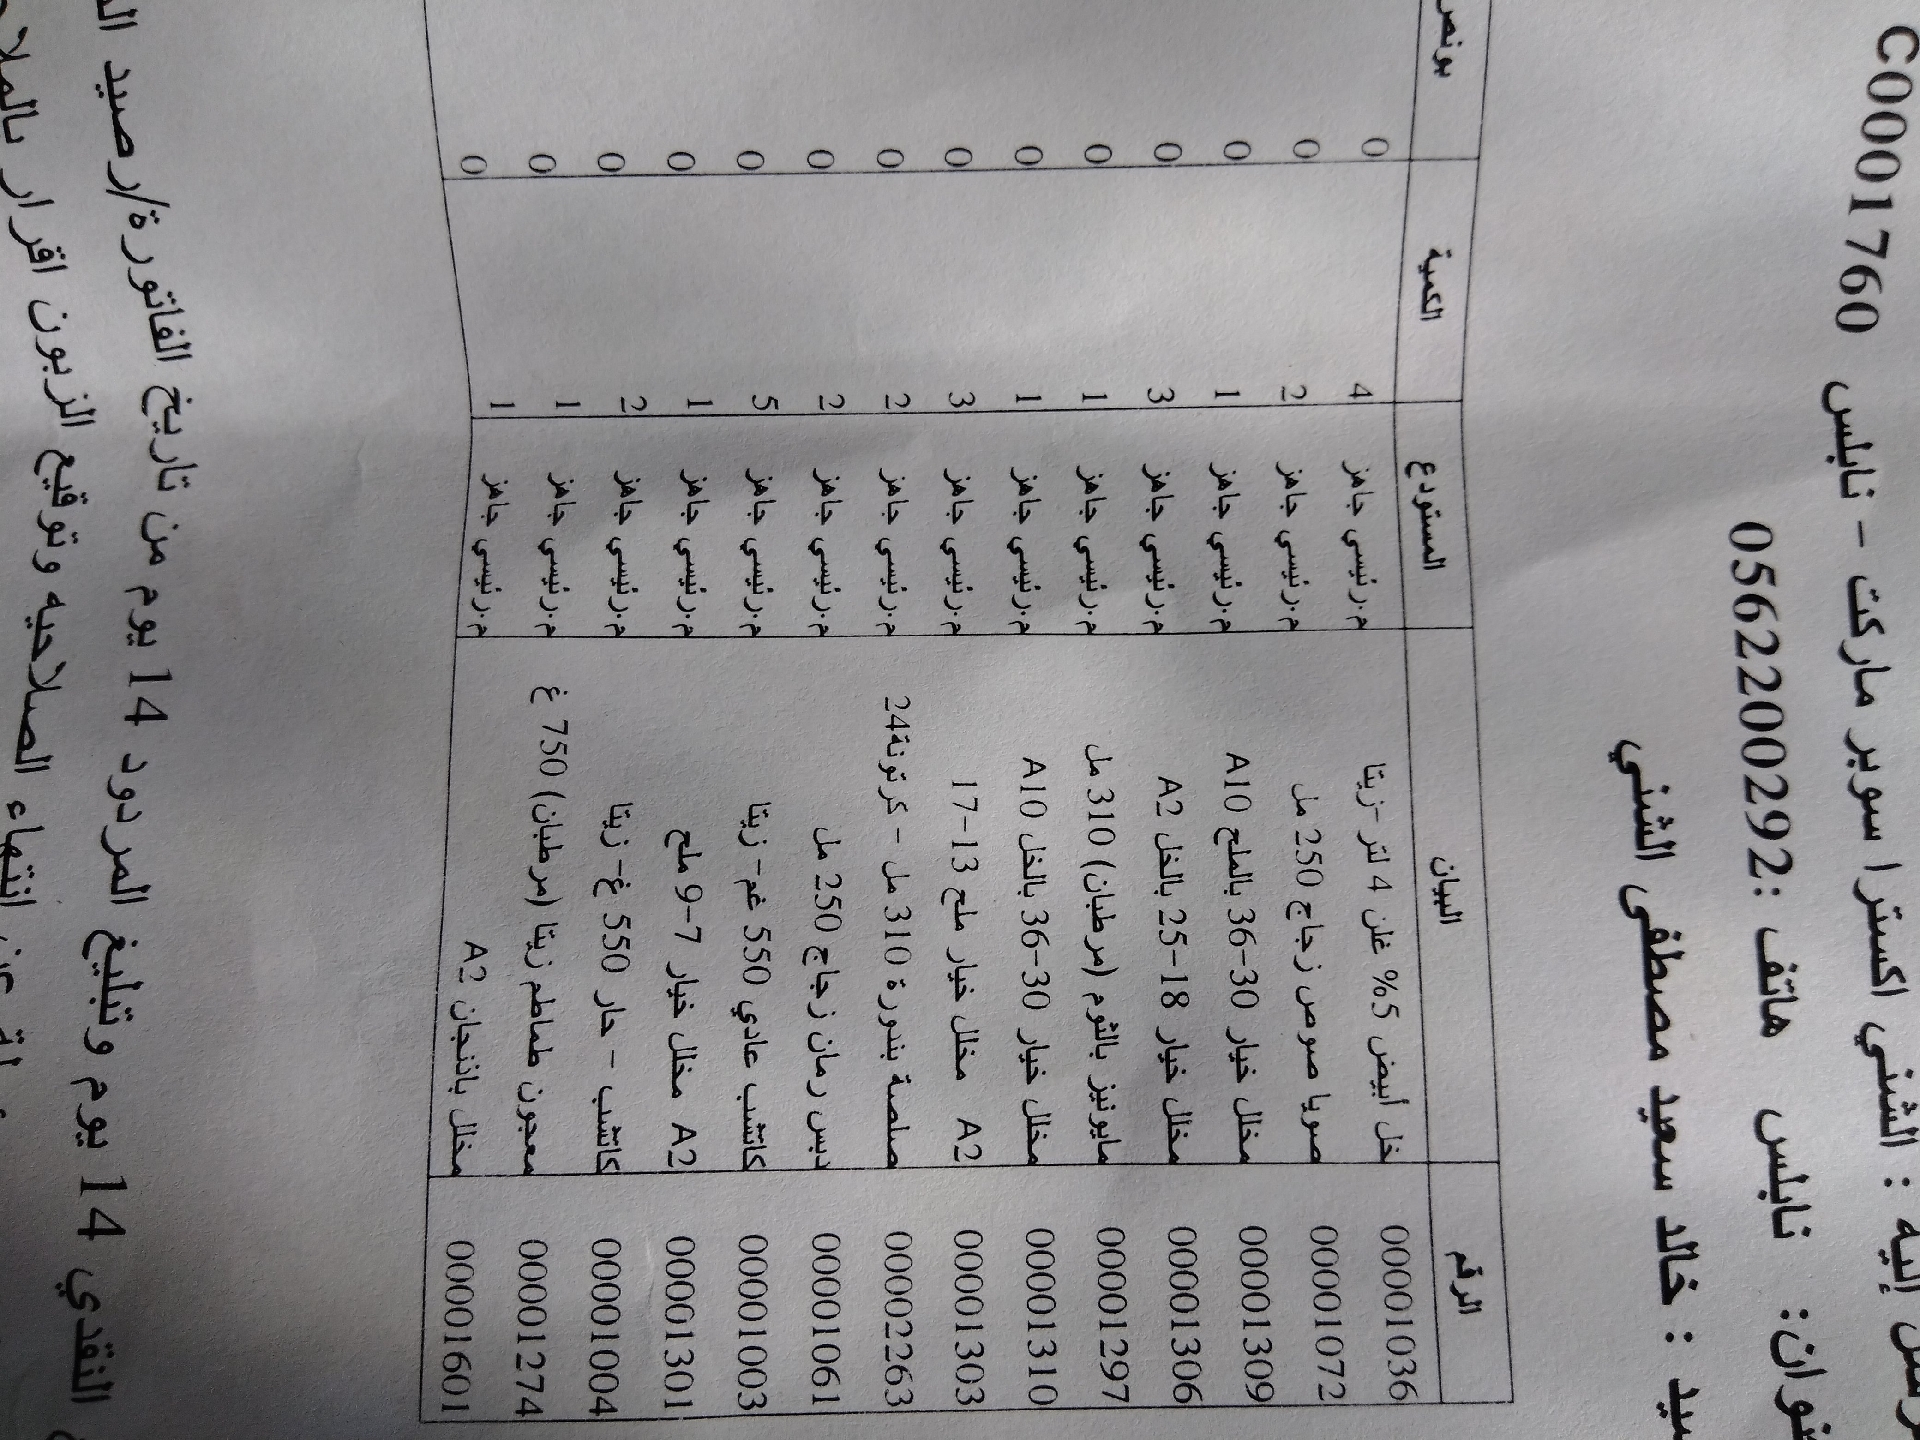 إليه : الشني اكسترا سوبر ماركت - نابلس C0001760
نابلس هاتف :0562200292
خالد سعيد مصطفى الشني
الرقم البيان المستودع الكمية بونص
00001036 خل أبيض 5% غلن 4 لتر -زيتا م.رئيسي جاهز 4 0
00001072 صويا صوص زجاج 250 مل م.رئيسي جاهز 2 0
00001309 مخلل خيار 30-36 بالملح A10 م.رئيسي جاهز 1 0
00001306 مخلل خيار 18-25 بالخل A2 م.رئيسي جاهز 3 0
00001297 مايونيز بالثوم (مرطبان) 310 مل م.رئيسي جاهز 1 0
00001310 مخلل خيار 30-36 بالخل A10 م.رئيسي جاهز 1 0
00001303 A2 مخلل خيار ملح 13-17 م.رئيسي جاهز 3 0
00002263 صلصة بندورة 310 مل - كرتونة24 م.رئيسي جاهز 2 0
00001061 دبس رمان زجاج 250 مل م.رئيسي جاهز 2 0
00001003 كاتشب عادي 550 غم- زيتا م.رئيسي جاهز 5 0
00001301 A2 مخلل خيار 7-9 ملح م.رئيسي جاهز 1 0
00001004 كاتشب - حار 550 غ- زيتا م.رئيسي جاهز 2 0
00001274 معجون طماطم زيتا (مرطبان) 750 غ م.رئيسي جاهز 1 0
00001601 مخلل باذنجان A2 م.رئيسي جاهز 1 0
النقدي 14 يوم وتبليغ المردود 14 يوم من تاريخ الفاتورة/رصيد
انتهاء الصلاحيه وتوقيع الزبون اقرار